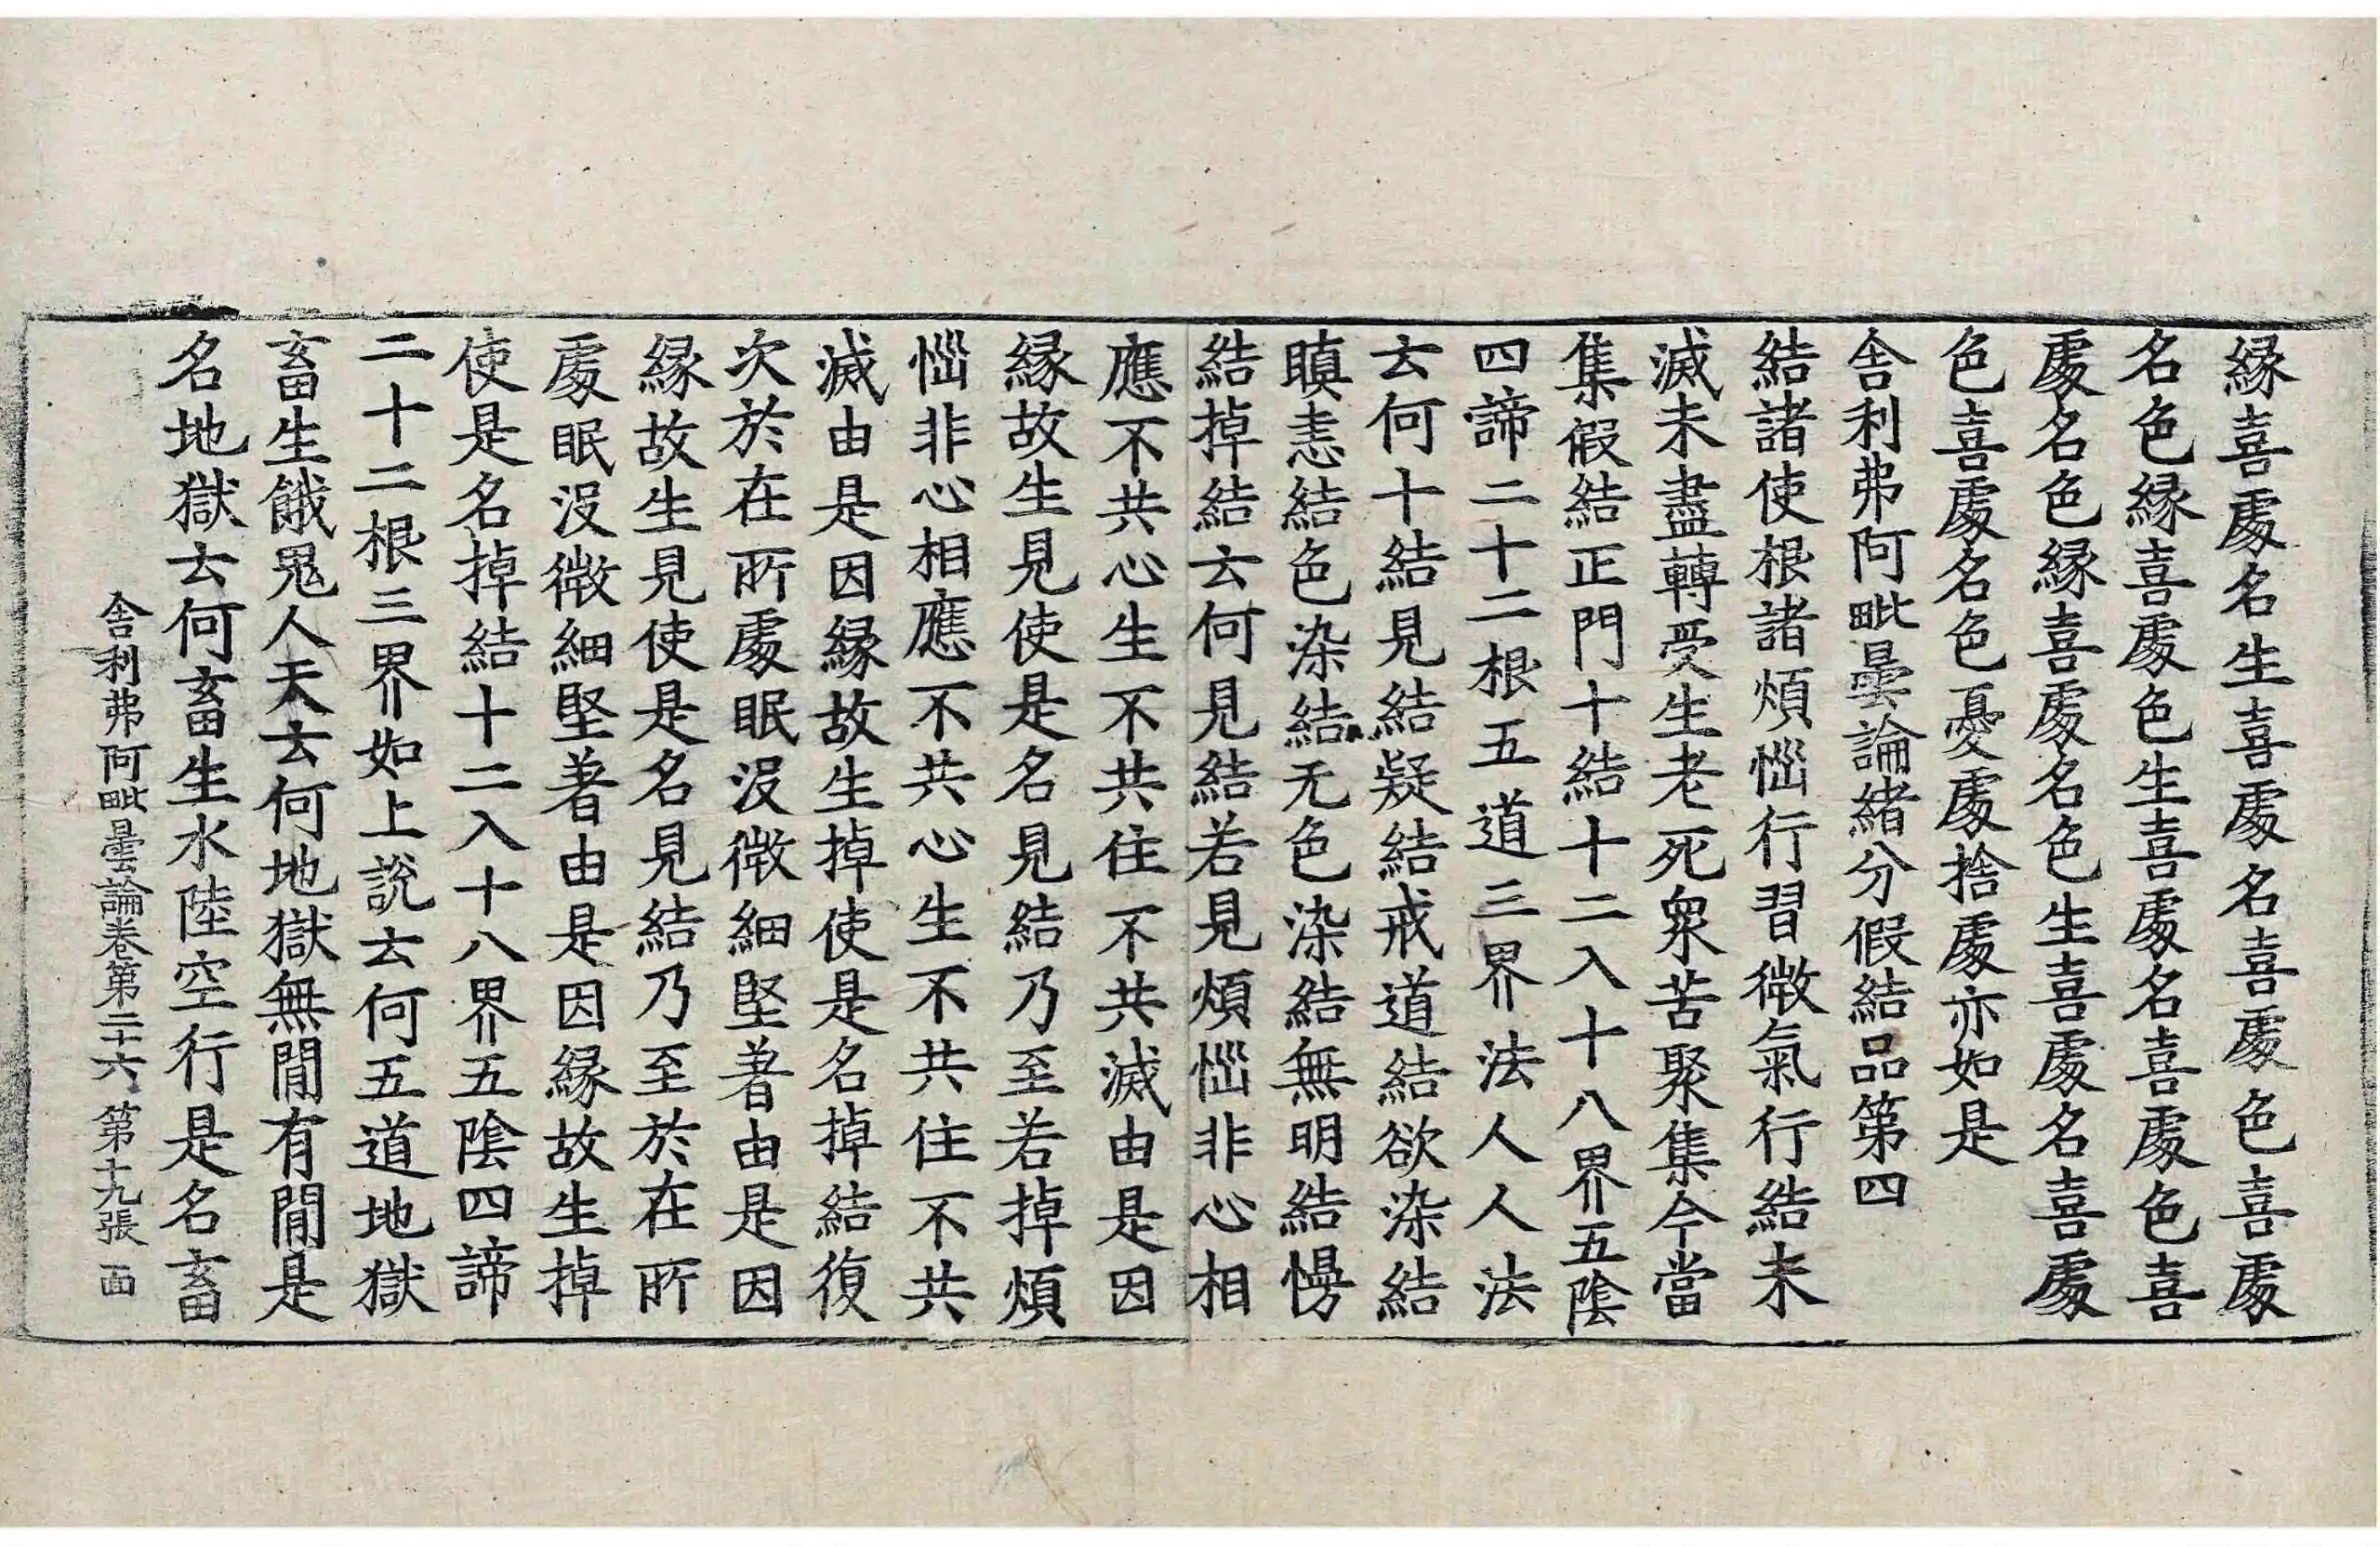 縁喜處名生喜處名喜處色喜處
名色縁喜處色生喜處名喜處色喜
處名色縁喜處名色生喜處名喜處
色喜處名色憂處捨處亦如是
舎利弗阿毗曇論緒分假結品第四
結諸使根諸煩惱行習微氣行結未
滅未盡轉受生老死衆苦聚集今當
集假結正門十結十二入十八界五陰
四諦二十二根五道三界法人人法
云何十結見結疑結戒道結欲染結
瞋恚結色染結无色染結無明結慢
結掉結云何見結若見煩惱非心相
應不共心生不共住不共滅由是因
縁故生見使是名見結乃至若掉煩
惱非心相應不共心生不共住不共
滅由是因縁故生掉使是名掉結復
次於在所處眠沒微細堅著由是因
縁故生見使是名見結乃至於在所
處眠沒微細堅著由是因縁故生掉
使是名掉結十二入十八界五陰四諦
二十二根三界如上說云何五道地獄
畜生餓鬼人天云何地獄無閒有閒是
名地獄云何畜生水陸空行是名畜
舎利弗阿毗曇論卷第二十六 第十九張 面